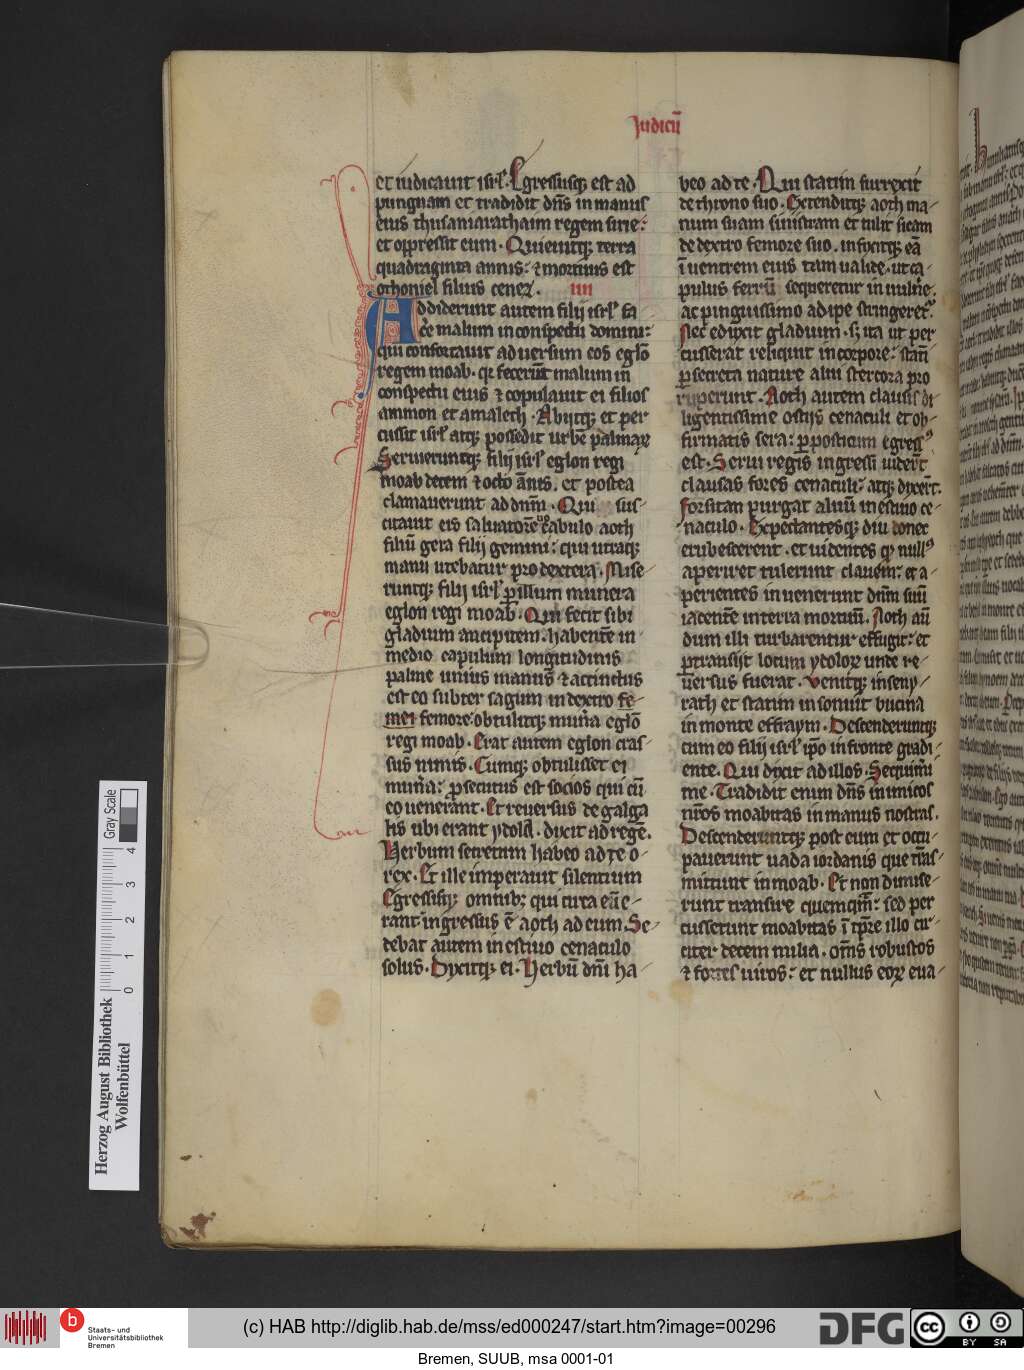 Iudicū
et iudicauit isrl̄. Egressusq; est ad
pungnam et tradidit dn̄s in manus
eius chusanrasathaim regem sirie:
et oppressit eum. Quieuitq; terra
quadraginta annis: ⁊ mortuus est
othoniel filius cenez. IIII
Addiderunt autem filij isrl̄ fa
c̄e malum in conspectu domini:
qui confortauit aduersum eos eglō
regem moab. qr̄ fecerūt malum in
conspectu eius ⁊ copulauit ei filios
ammon et amalech. Abijtq; et per
cussit isrl̄ atq; possedit urbē palmaꝝ
Seruieruntq; filij isrl̄ eglon regi
moab decem ⁊ octo ānis. et postea
clamauerunt ad dn̄m. Qui sus-
citauit eis saluatorē uocabulo aoth
filiū gera filij gemini: qui utraq;
manu utebatur pro dextera. Mise-
runtq; filij isrl̄ ꝑ illum munera
eglon regi moab. Qui fecit sibi
gladium ancipitem. habentē in-
medio capulum longitudinis
palme unius manus ⁊ accinctus
est eo subter sagum in dextro fe-
mei femore: obtulitq; mun̄a eglō
regi moab. Erat autem eglon cras-
sus nimis. Cumq; obtulisset ei
mun̄a: ꝓsecutus est socios qui cū
eo uenerant. Et reuersus de galga
lis ubi erant ydola. dixit ad regē.
Verbum secretum habeo ad te o-
rex. Et ille imperauit silentium
Egressisq; omnib; qui circa eū e-
rant: ingressus ē aoth ad eum. Se-
debat autem in estiuo cenaculo
solus. Dixitq; ei. Verbū dn̄i ha-
beo ad te. Qui statim surrexit
de throno suo. Extenditq; aoth ma-
num suam sinistram et tulit sicam
de dextro femore suo. infixitq; eā
ī uentrem eius tam ualide. ut ca-
pulus ferrū sequeretur in uulnē.
ac pinguissimo adipe stringeret̄.
Nec eduxit gladium. s; ita ut per
cusserat reliquit in corpore: statī
ꝑ secreta nature alui stercora pro
ruperunt. Aoth autem clausis di-
ligentissime ostijs cenaculi et ob-
firmatis sera: ꝑ posticum egressꝰ
est. Serui regis ingressi uider̄t
clausas fores cenaculi: atq; dixer̄t.
forsitan purgat aluū in estiuo ce-
naculo. Expectantesq; diu donec
erubescerent. et uidentes qꝫ nullꝰ
aperiret tulerunt clauem: et a-
perientes inuenerunt dn̄m suū
iacentē in terra mortuū. Aoth aū
dum illi turbarentur effugit: et
ꝑtransijt locum ydoloꝝ unde re-
uersus fuerat. Venitq; in seny-
rath et statim insonuit bucina
in monte effraym. Descenderuntq;
cum eo filij isrl̄ ip̄o in fronte gradi-
ente. Qui dixit ad illos. Sequimi
me. Tradidit enim dn̄s inimicos
nr̄os moabitas in manus nostras.
Descenderuntq; post eum et occu-
pauerunt uada iordanis que trās-
mittunt in moab. Et non dimise-
runt transire quemqm̄: sed per
cusserunt moabitas ī tp̄re illo cir-
citer decem milia. om̄s robustos
⁊ fortes uiros: et nullus eoꝝ eua-
Gray Scale
0 1 2 3 4
Herzog August Bibliothek
Wolfenbüttel
b Staats- und
Universitätsbibliothek
Bremen
(c) HAB http://diglib.hab.de/mss/ed000247/start.htm?image=00296
DFG
cc BY SA
Bremen, SUUB, msa 0001-01